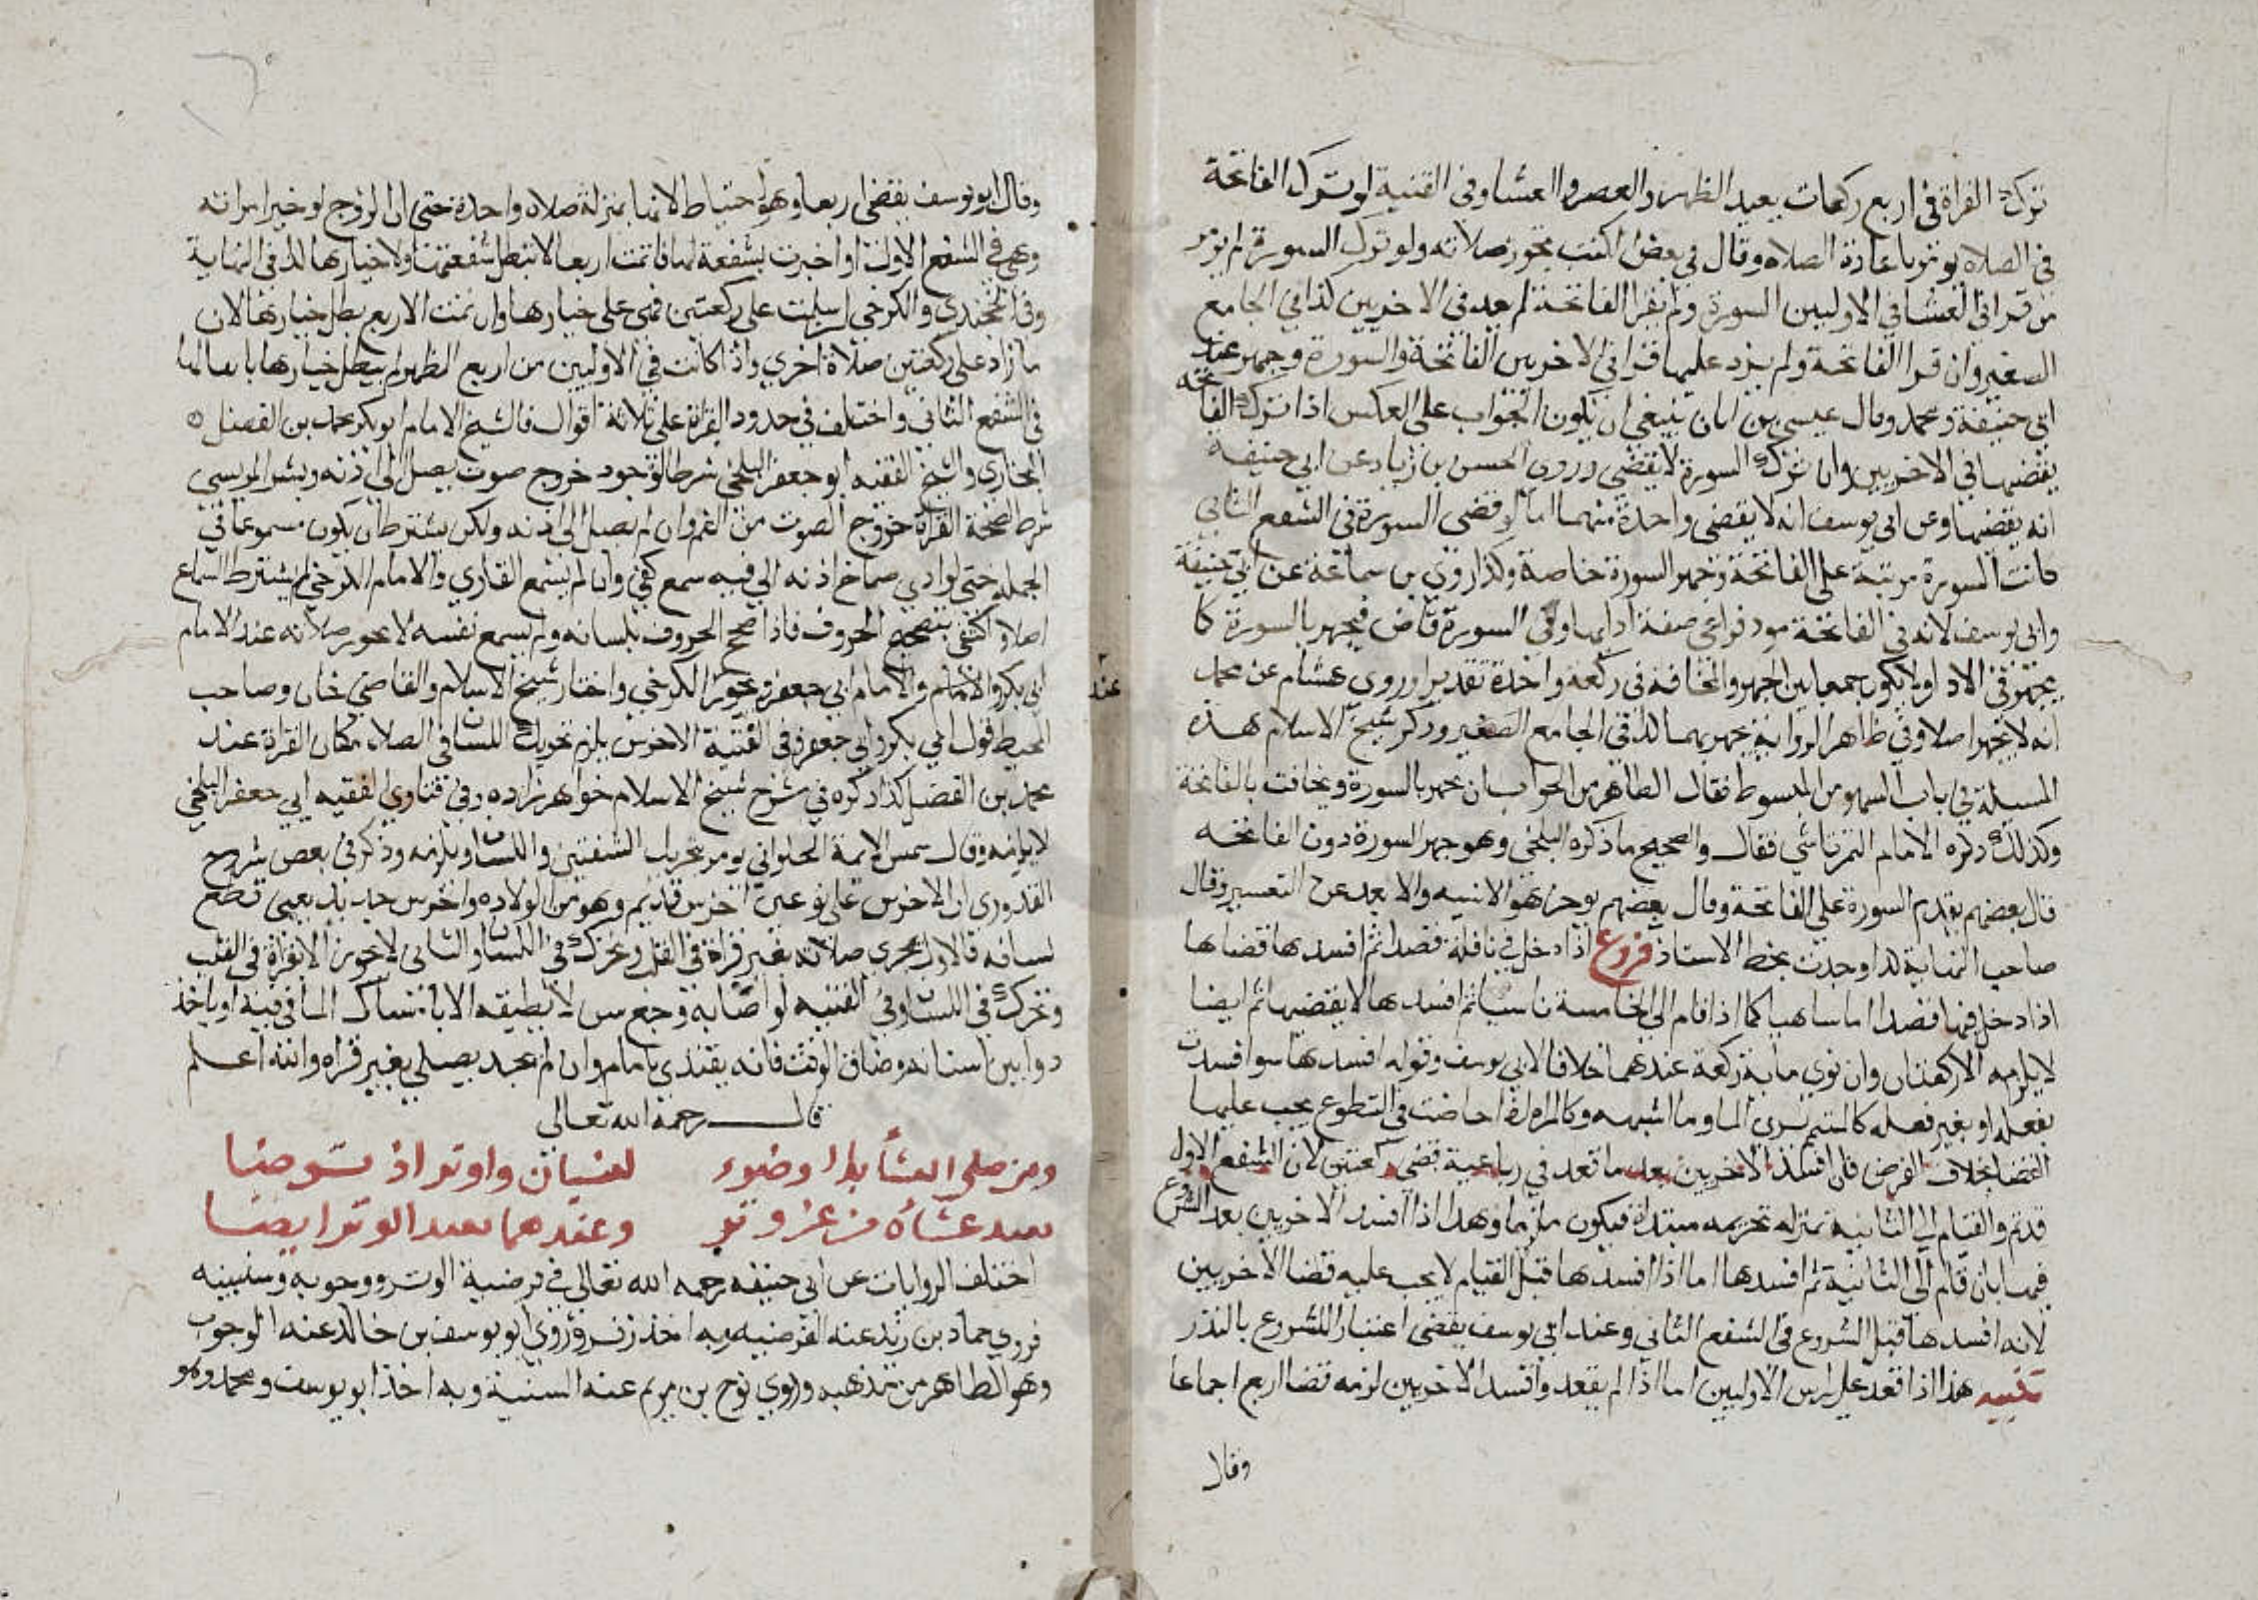 ترك القراة في اربع ركعات يعيد الظهر والعصر والعشا وفي القنية لو ترك الفاتحة
في الصلاه يومر باعادة الصلاه وقال في بعض الكتب تجوز صلاته ولو ترك السورة لم يومر
من قرا في العشا في الاوليين السورة ولم يقرا الفاتحة لم يعد في الاخريين كذا في الجامع
الصغير وان قرا الفاتحة ولم يزد عليها قرا في الاخريين الفاتحة والسورة وجهر عند
ابي حنيفة ومحمد وقال عيسى بن ابان ينبغي ان يكون الجواب على العكس اذا ترك الفاتحه
يقضيها في الاخريين وان ترك السورة لا يقضي وروى الحسن بن زياد عن ابي حنيفه
انه يقضيها وعن ابي يوسف انه لا يقضي واحدة منهما اما لو قضى السورة في الشفع الثاني
كانت السورة مرتبة على الفاتحة وجهر السورة خاصة وكذا روى بن سماعة عن ابي حنيفة
وابي يوسف لانه في الفاتحة مود فراعى صفة ادايها وفي السورة قاض فيجهر بالسورة كما
يجهر في الادا ولا يكون جمعا بين الجهر والمخافته في ركعة واحدة تقديرا وروى هشام عن محمد
انه لا يجهر اصلا وفي ظاهر الرواية يجهر بهما كذا في الجامع الصغير وذكر شيخ الاسلام هذه
المسيلة في باب السهو من المبسوط فقال الظاهر من الجواب ان يجهر بالسورة ويخافت بالفاتحة
وكذلك ذكره الامام التمرتاشي فقال والصحيح ما ذكره البلخي وهو جهر السورة دون الفاتحه
قال بعضهم يقدم السورة على الفاتحة وقال بعضهم يوخر وهو الاشبه والابعد عن التغيير وقال
صاحب النهاية كذا وجدت بخط الاستاذ فروع اذا دخل في نافلة قصدا ثم افسدها قضاها
اذا دخل فيها قصدا اما ساهيا كما اذا قام الى الخامسة ناسيا ثم افسدها لا يقضيها ثم ايضا
لا يلزمه الا ركعتان وان نوى ماية ركعة عندهما خلافا لابي يوسف وقوله افسدها سوا افسدت
بفعله او بغير فعله كالمتيمم يرى الما وما اشبهه وكالمراه اذا حاضت في التطوع يجب عليها
القضا بخلاف الفرض فان افسد الاخريين بعد ما قعد في رباعية قضى ركعتين لان الشفع الاول
قد تم والقيام الى الثانية بمنزلة تحريمه مبتداة فيكون ملزما وهذا اذا افسد الاخريين بعد الشروع
فيهما بان قام الى الثانية ثم افسدها اما اذا افسدها قبل القيام لا يجب عليه قضا الاخريين
لانه افسدها قبل الشروع في الشفع الثاني وعند ابي يوسف يقضي اعتبارا للشروع بالنذر
تنبيه هذا اذا قعد على راس الاوليين اما اذا لم يقعد وافسد الاخريين لزمه قضا اربع اجماعا
وقال
وقال ابو يوسف يقضي اربعا وهو احتياط لانها بمنزلة صلاة واحدة حتى ان الزوج لو خير امراته
وهي في الشفع الاول او اخبرت بشفعة لها فاتمت اربعا لا تبطل شفعتها ولا خيارها كذا في النهاية
وفي الخجندي والكرخي ان سلمت على ركعتين فهي على خيارها وان تمت الاربع بطل خيارها لان
ما زاد على ركعتين صلاة اخرى واذا كانت في الاوليين من اربع الظهر لم يبطل خيارها بانتقالها
في الشفع الثاني واختلف في حدود القراة على ثلاثة اقوال فالشيخ الامام ابو بكر محمد بن الفضل
البخاري والشيخ الفقيه ابو جعفر البلخي شرطا لوجود خروج صوت يصل الى اذنه وبشر المريسي
شرط لصحة القراة خروج الصوت من الفم وان لم يصل الى اذنه ولكن يشترط ان يكون مسموعا في
الجملة حتى لو ادنى صماخ اذنه الى فيه سمع كفى وان لم يسمع القاري والامام الكرخي لم يشترط السماع
اصلا واكتفى بتصحيح الحروف فاذا صحح الحروف بلسانه ولم يسمع نفسه لا تجوز صلاته عند الامام
عند
ابي بكر والامام ابي جعفر وتجوز الكرخي واختار شيخ الاسلام والقاضي خان وصاحب
المحيط قول ابي بكر وابي جعفر وفي القنية الاخرس يلزم تحريك اللسان في الصلاة مكان القراة عند
محمد بن الفضل كذا ذكره في شرح شيخ الاسلام خواهر زاده وفي فتاوي الفقيه ابي جعفر البلخي
لا يلزمه وقال شمس الايمة الحلواني يومر بتحريك الشفتين واللسان ويلزمه وذكر في بعض شروح
القدوري ان الاخرس على نوعين اخرس قديم وهو من الولاده واخرس حديث يعني قطع
لسانه فالاول تجزي صلاته بغير قراة في القلب وتحرك في اللسان والثاني لا تجوز الا بقراة في القلب
وتحرك في اللسان وفي القنيه لو اصابه وجع سن لا يطيقه الا بامساك الما في فيه او ياخذ
دوا بين اسنانه وضاق الوقت فانه يقتدي بامام وان لم يجد يصلي بغير قراه والله اعلم
قال رحمة الله تعالى
ومن صلى العشا بلا وضوء لنسيان واوتر اذ توضا
يعيد عشاه من غير وتر وعندهما يعيد الوتر ايضا
اختلف الروايات عن ابي حنيفه رحمه الله تعالى في فرضية الوتر ووجوبه وسنيته
فروى حماد بن زيد عنه الفرضيه وبه اخذ زفر وروى ابو يوسف بن خالد عنه الوجوب
وهو الظاهر من مذهبه وروى نوح بن مريم عنه السنية وبه اخذ ابو يوسف ومحمد وهو